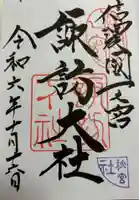 信濃國一之宮
諏訪大社
秋宮
社
令和六年十一月十六日